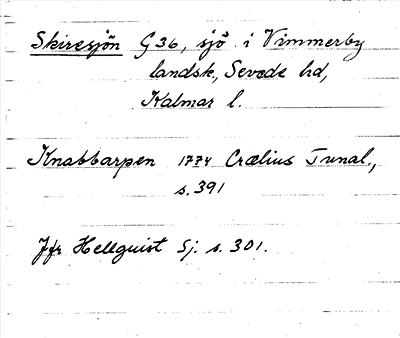 Skiresjön G36, sjö i Vimmerby
landsk, Sevede hd,
Kalmar l.
Knabbarpen 1774 Crælius Tunal.,
s. 391
Jfr Hellquist Sj. s. 301.